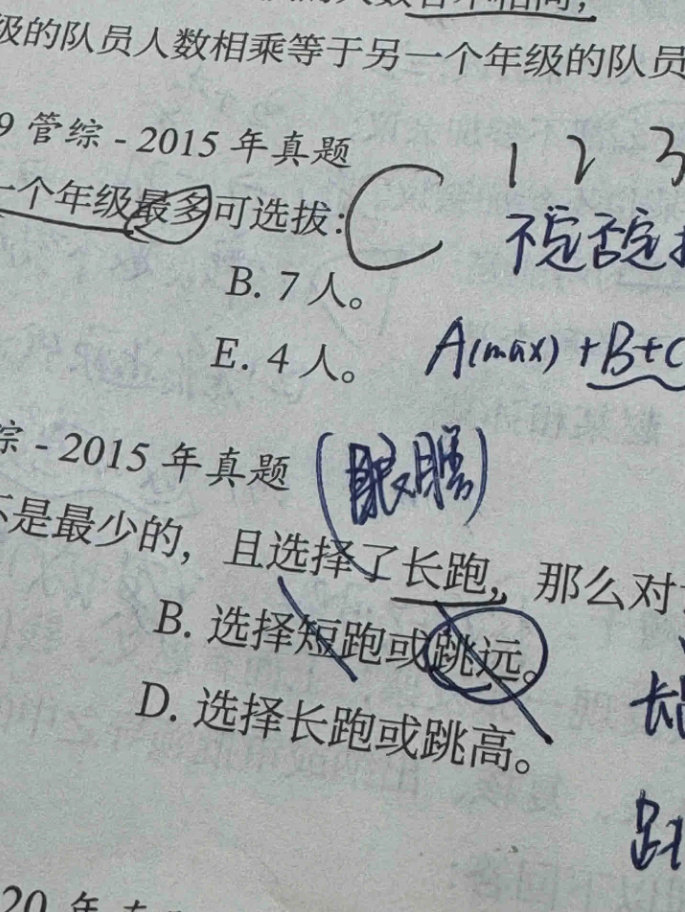 各不相同，
级的队员人数相乘等于另一个年级的队员
9 管综 - 2015 年真题
1 2 3
一个年级最多可选拔： C
不定 否定
B. 7 人。
E. 4 人。
A(max) + B + C
综 - 2015 年真题
不是最少的，且选择了长跑，那么对
B. 选择短跑或跳远。
D. 选择长跑或跳高。
20 年